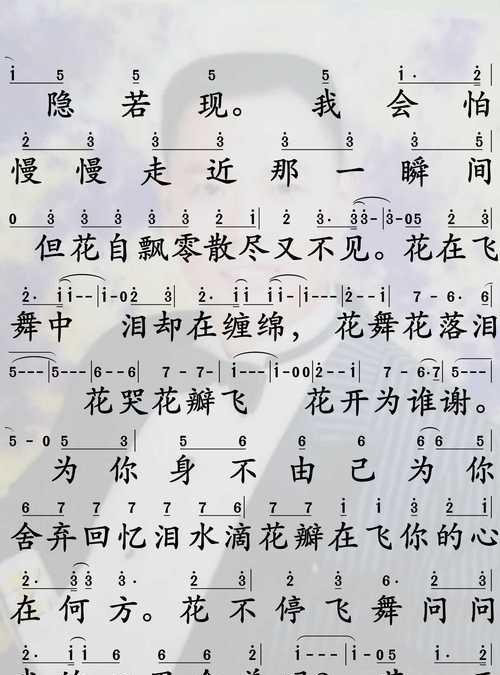 i 5 5 5 5 i· 2
隐若现。我会怕
2 3 3 3 3 3 3 5
慢慢走近那一瞬间
0 3 3 3 3 3 2 i 2 3· 33- 3-05 2 3
但花自飘零散尽又不见。花在飞
2· ii-- i-02 3 2· ii i-- 2--i 7-6· 6
舞中 泪却在缠绵，花舞花落泪
5--- 5--- 6--6 7-7- i--- i-00 2--i 7-6·7 5---
花哭花瓣飞 花开为谁谢。
5-0 5 3 5 6 6 i 665
为你身不由己为你
6 7 7 7 7 7 6 7 7 i i 3 2 i
舍弃回忆泪水滴花瓣在飞你的心
2· 33 3· 2 3 2 3 6· 2 3
在何方。花不停飞舞问问
2· ii 6 6 6 6 2 i--- i-05 i i· 2